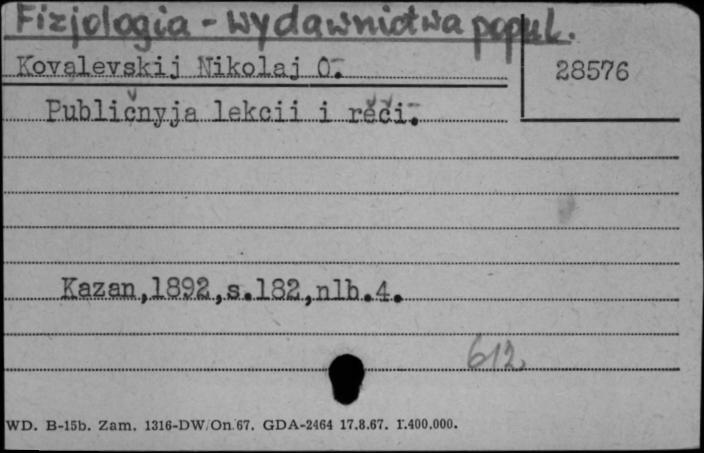 Fizjologia - wydawnictwa popul.
Kovalevskij Nikolaj O.
28576
Publičnyja lekcii i rěči.
Kazan, 1892, s.182, nlb.4.
612
WD. B-15b. Zam. 1316-DW/On/67. GDA-2464 17.8.67. I.400.000.